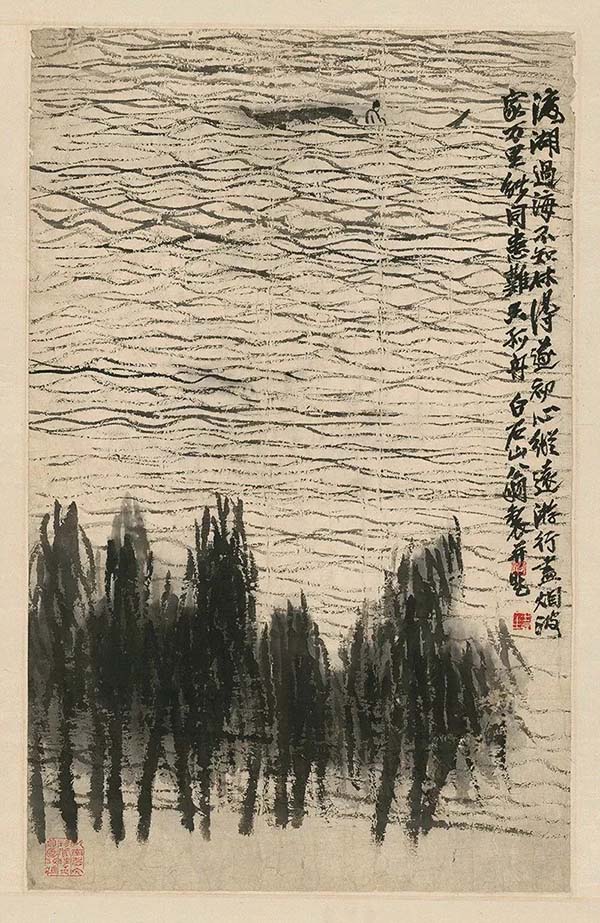 渡湖過海不知休得遂初心縱遠游行盡煙波
家萬里能同患難只孤舟 白石山翁製并題